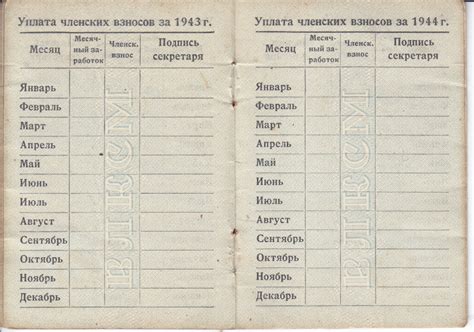 Уплата членских взносов за 1943 г.
Месяц
Месяч-
ный за-
работок
Членск.
взнос
Подпись
секретаря
Январь
Февраль
Март
Апрель
Май
Июнь
Июль
Август
Сентябрь
Октябрь
Ноябрь
Декабрь
ВЛКСМ
Уплата членских взносов за 1944 г.
Месяц
Месяч-
ный за-
работок
Членск.
взнос
Подпись
секретаря
Январь
Февраль
Март
Апрель
Май
Июнь
Июль
Август
Сентябрь
Октябрь
Ноябрь
Декабрь
ВЛКСМ